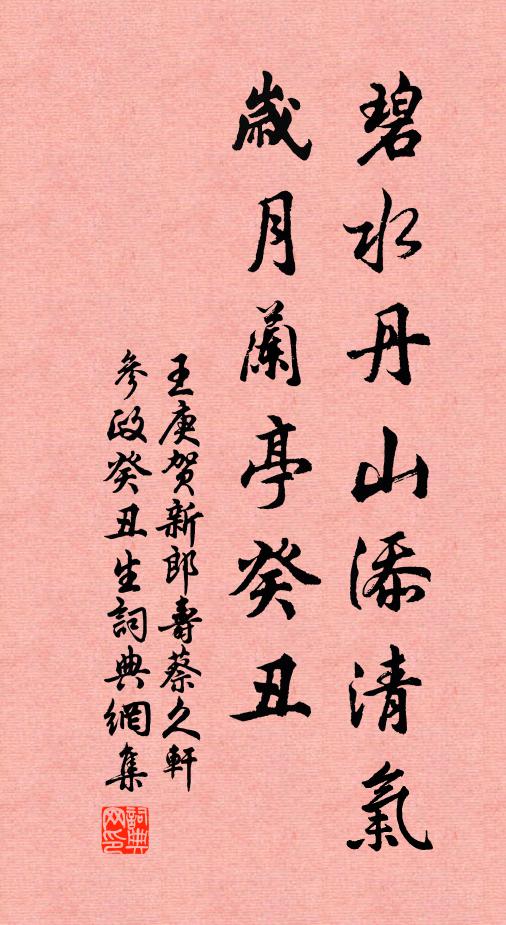 碧水丹山添清氣
歲月蘭亭癸丑
王庚賀新郎壽蔡久軒
參政癸丑生詞典網集
詞典
网印